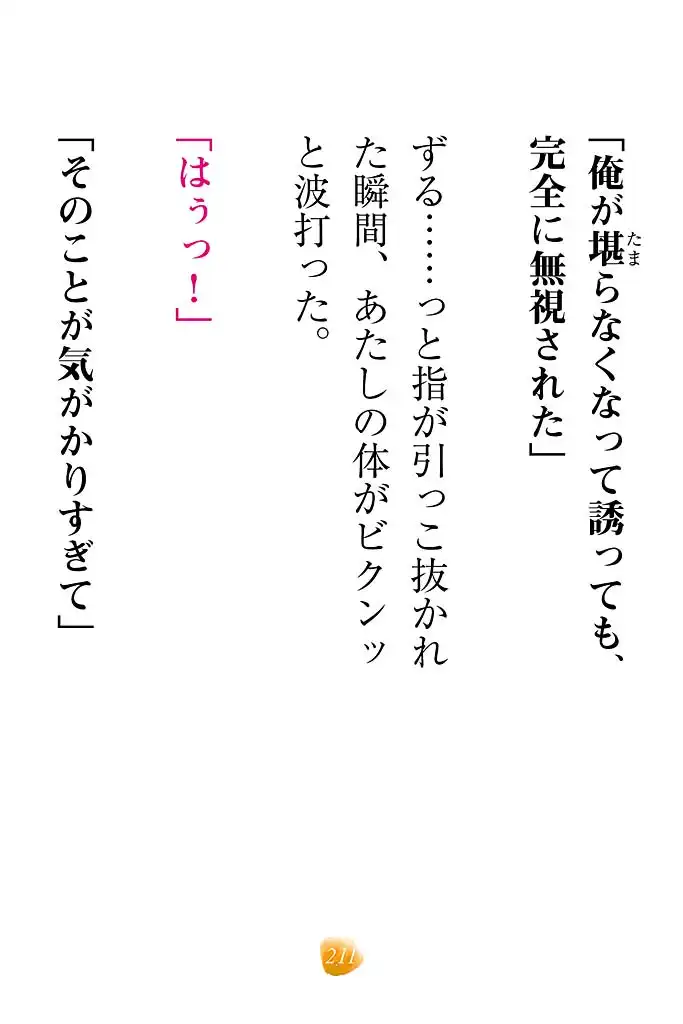 「俺が堪らなくなって誘っても、
たま
完全に無視された」
ずる……っと指が引っこ抜かれ
た瞬間、あたしの体がビクンッ
と波打った。
「はぅっ！」
「そのことが気がかりすぎて」
211